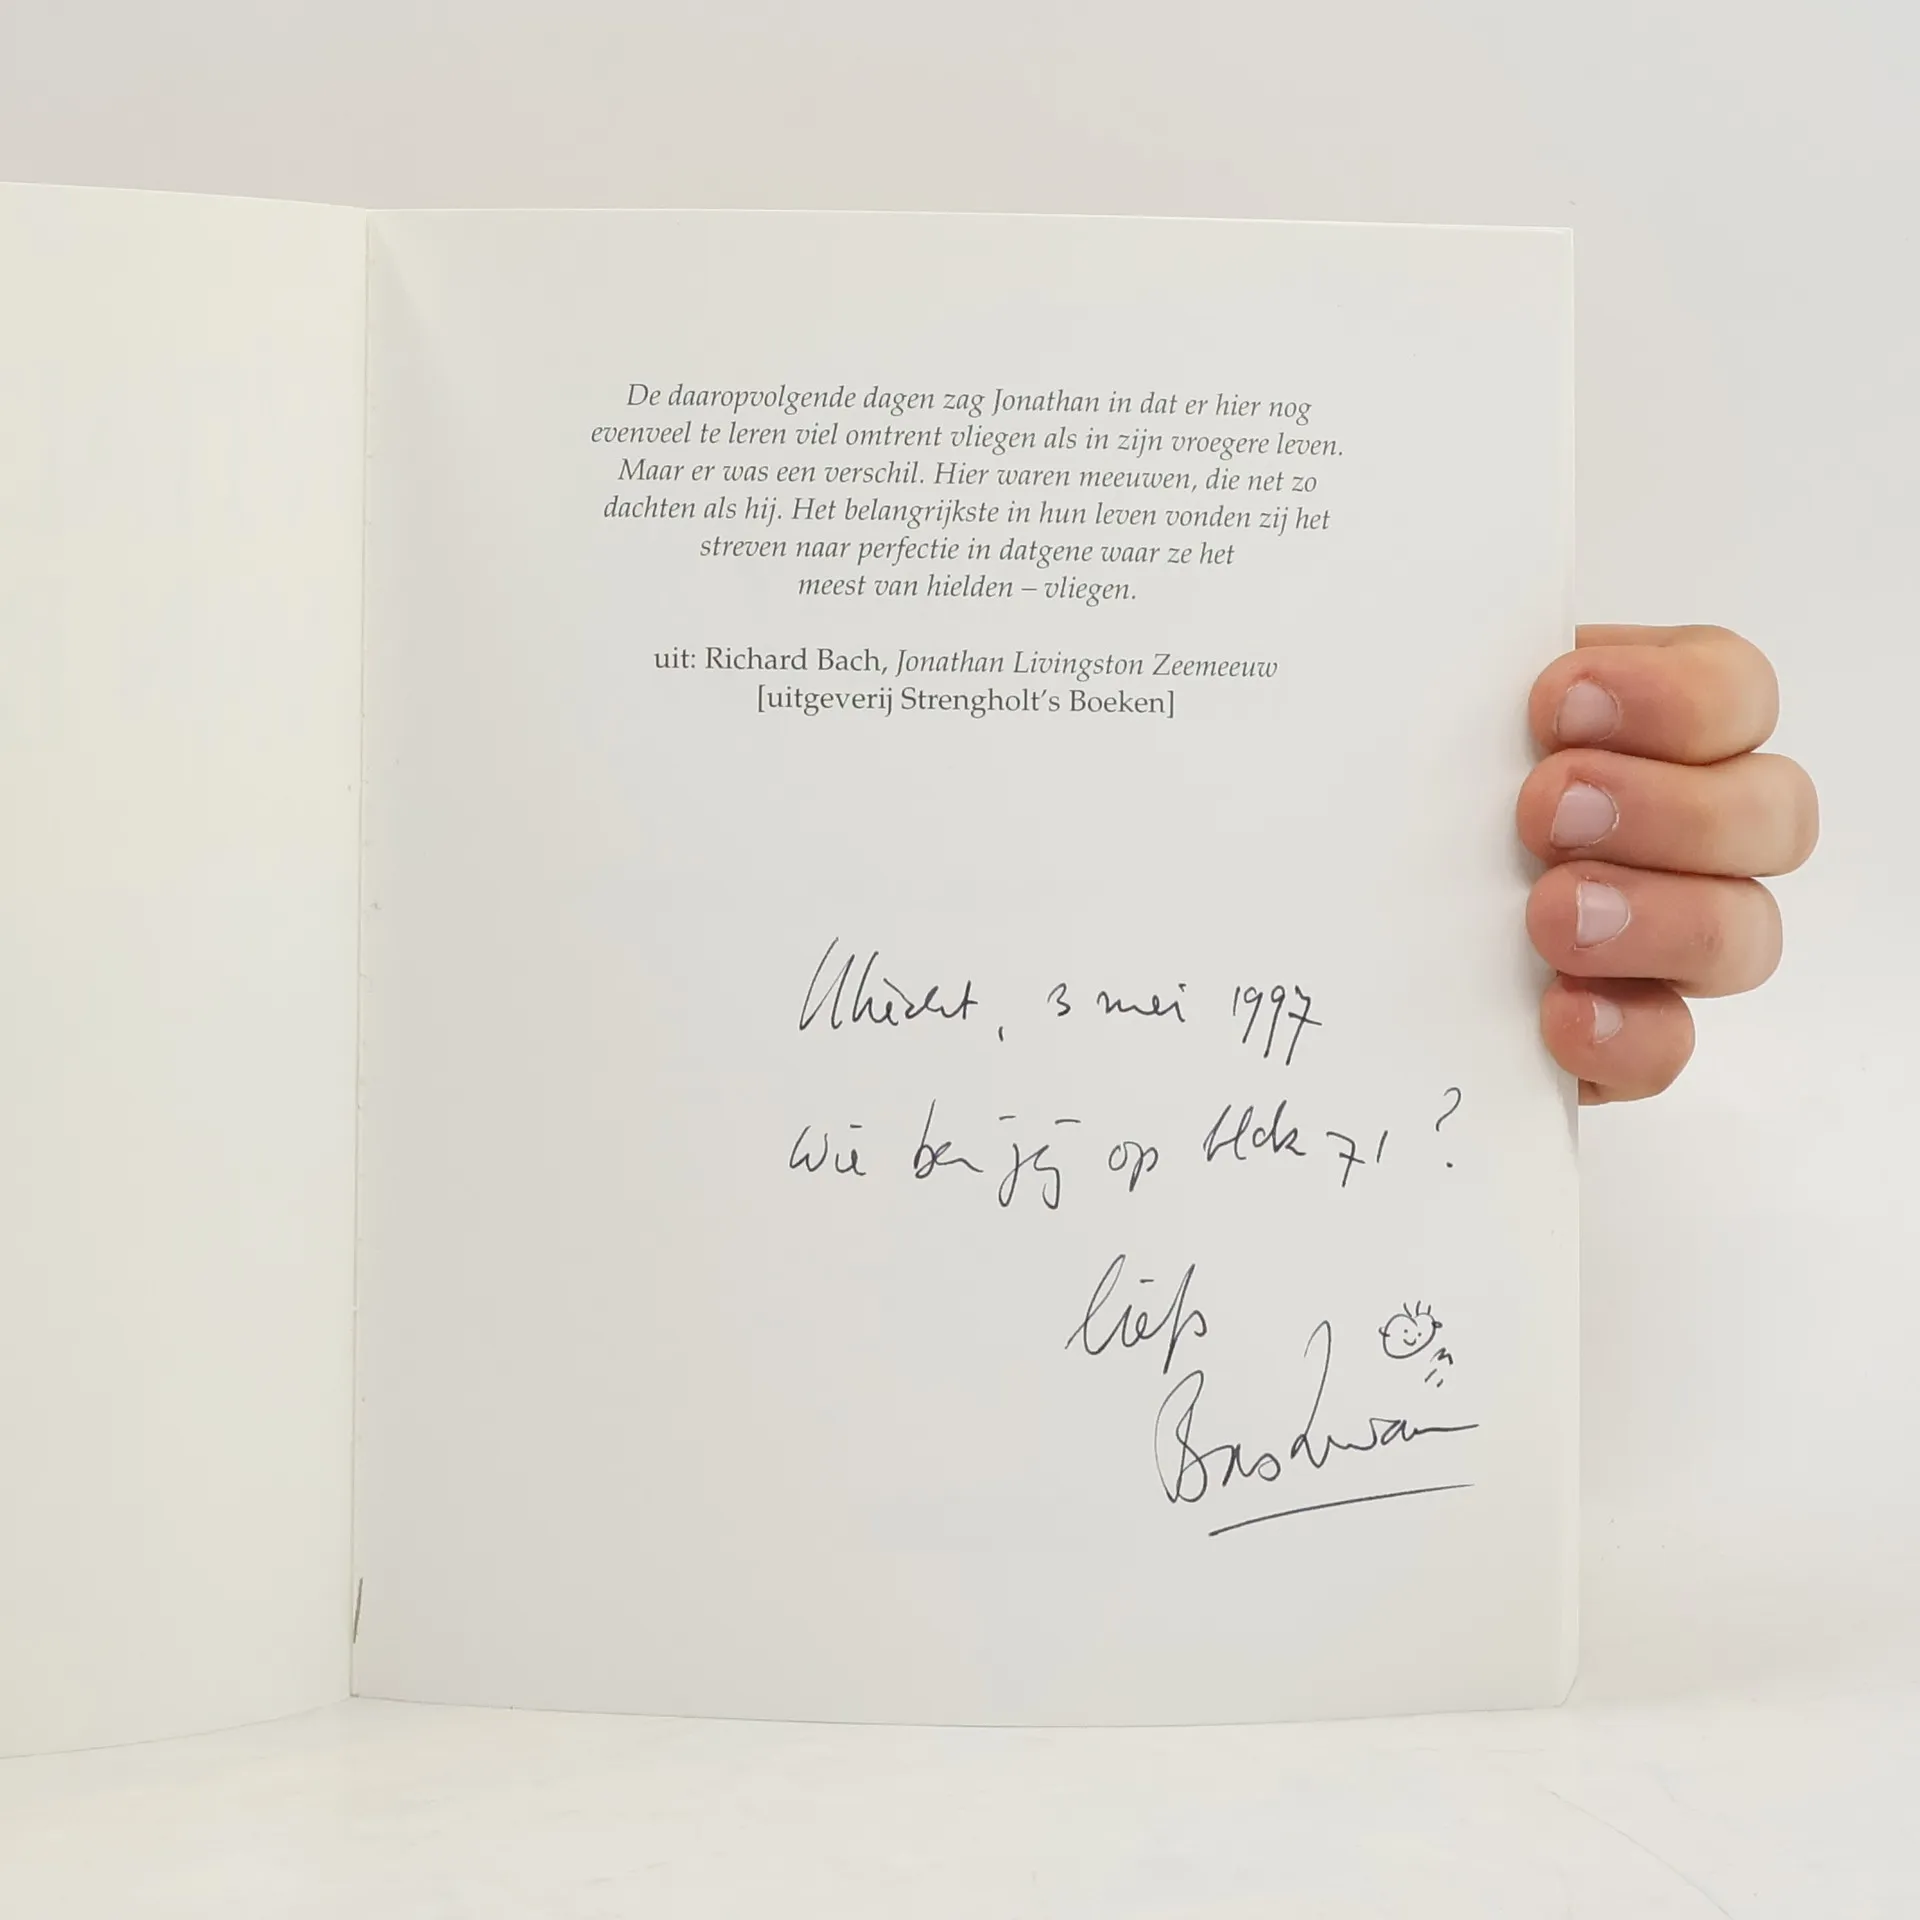 De daaropvolgende dagen zag Jonathan in dat er hier nog
evenveel te leren viel omtrent vliegen als in zijn vroegere leven.
Maar er was een verschil. Hier waren meeuwen, die net zo
dachten als hij. Het belangrijkste in hun leven vonden zij het
streven naar perfectie in datgene waar ze het
meest van hielden – vliegen.
uit: Richard Bach, Jonathan Livingston Zeemeeuw
[uitgeverij Strengholt's Boeken]
Utrecht, 3 mei 1997
Wie ben jij op bldz 71?
liefs
Bas Zwaan